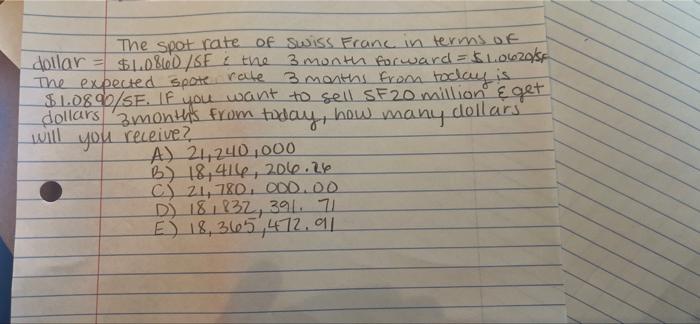 The spot rate of Swiss Franc in terms of
dollar = $1.0860/SF & the 3 month forward = $1.0620/SF
The expected spote rate 3 months from today is
$1.0890/SF. If you want to sell SF20 million & get
dollars 3months from today, how many dollars
will you receive?
A) 21,240,000
B) 18,416,206.26
C) 21,780,000.00
D) 18,832,391.71
E) 18,365,472.91